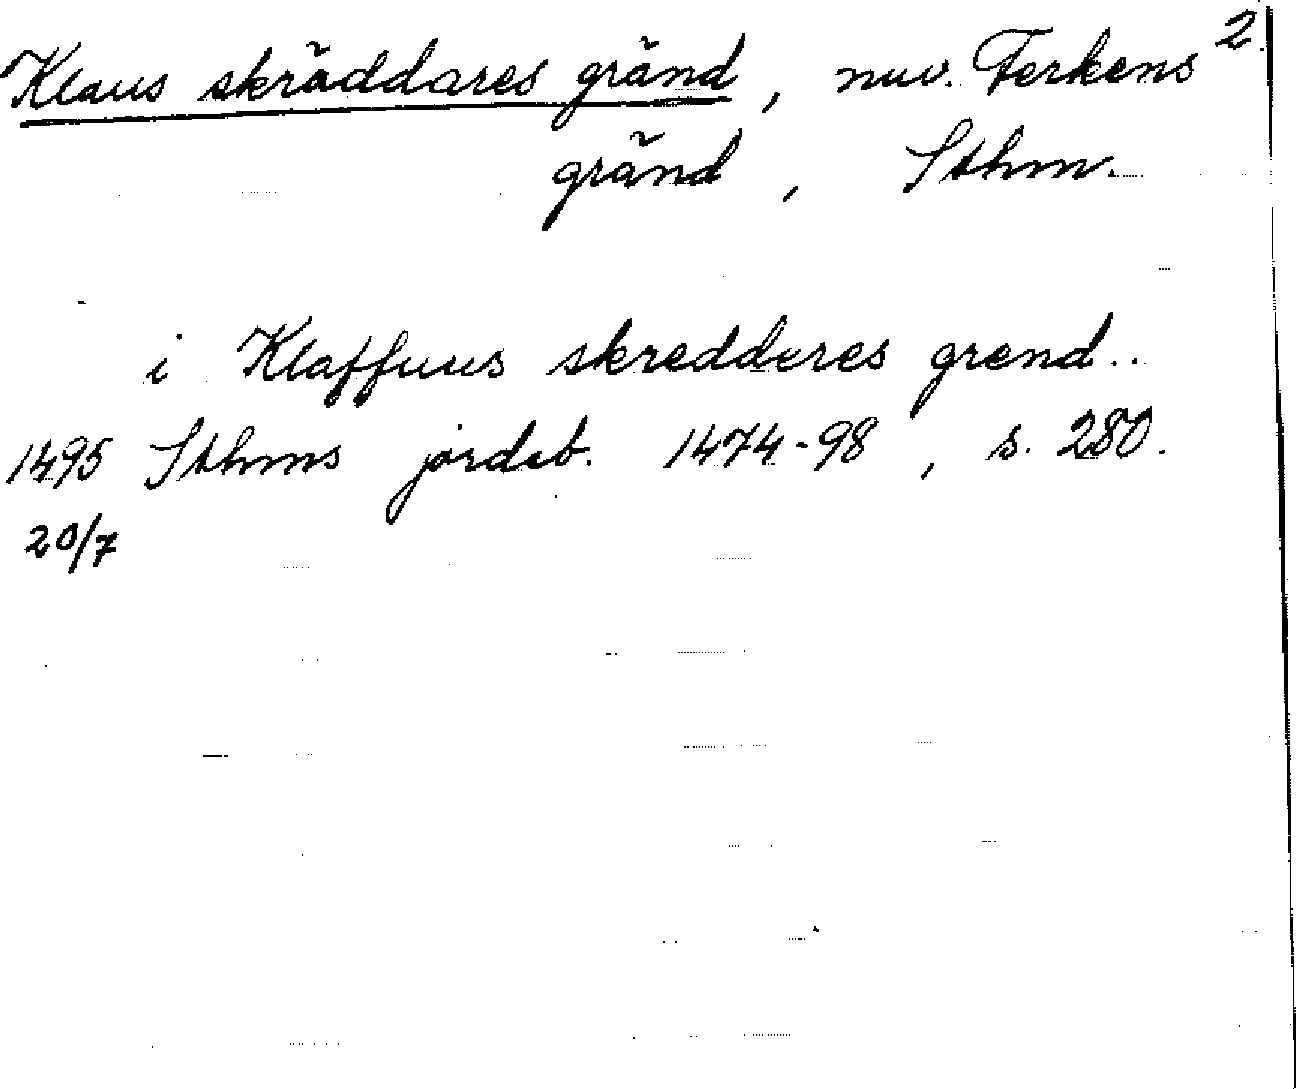 2.
Klaus skräddares gränd, nuv. Ferkens
gränd, Sthm.
i Klaffuus skredderes grend..
1495 Sthms jordeb. 1474-98, s. 280.
20/7